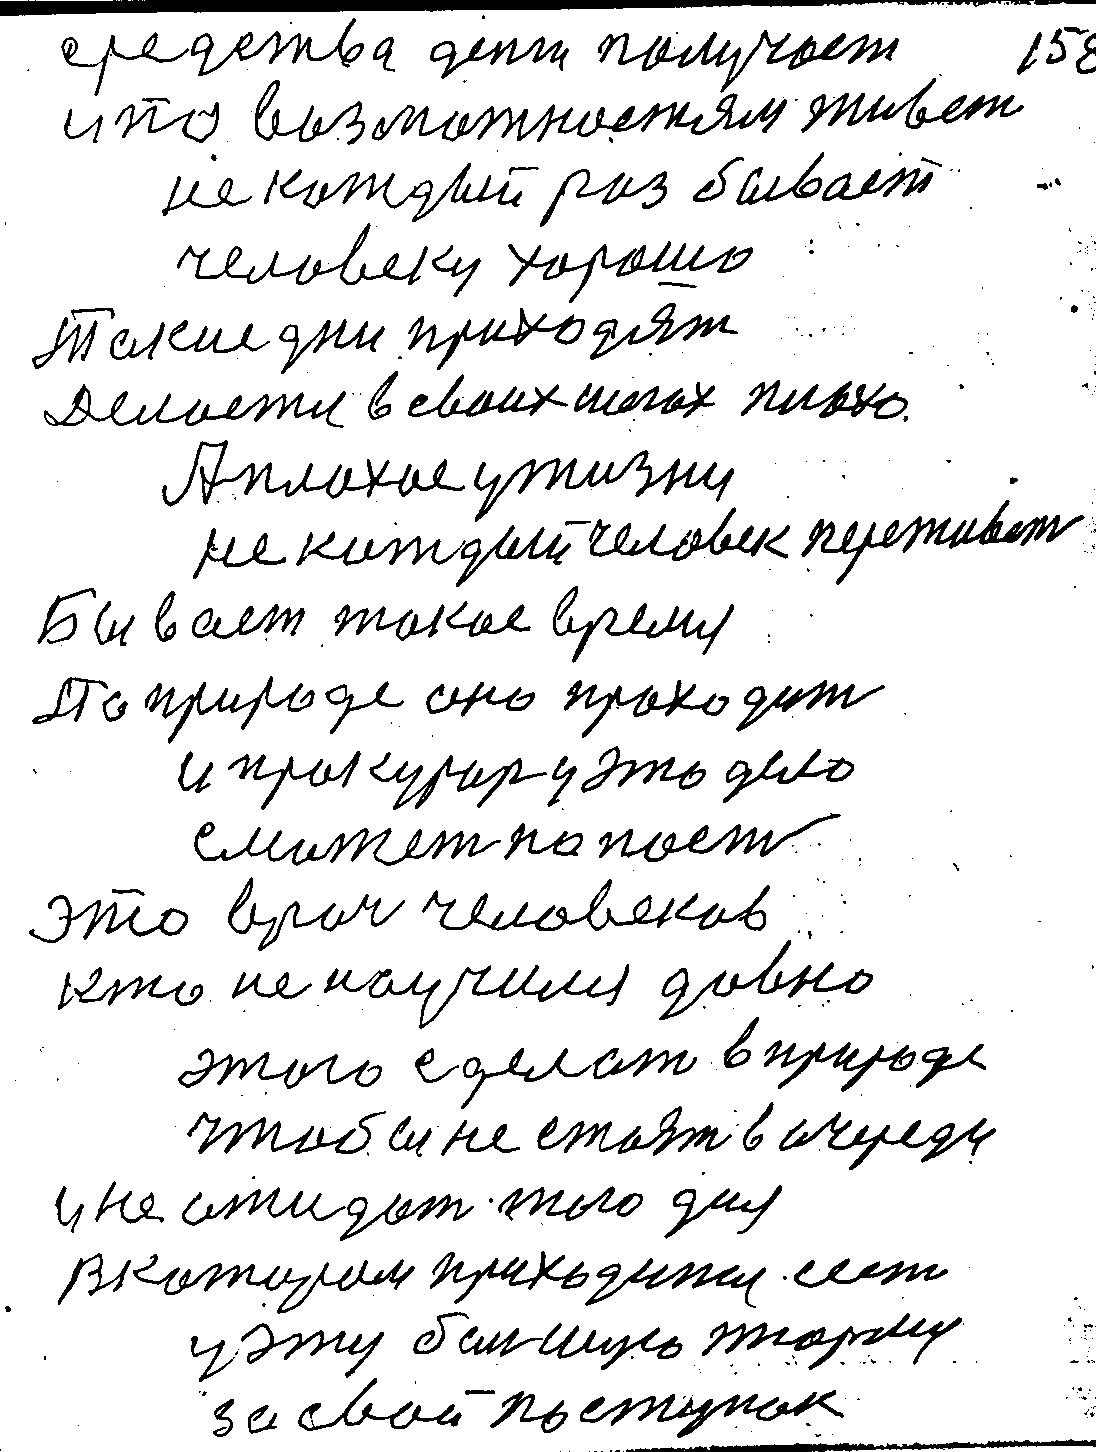 средства денги получает 158
и по возможностям живет
не каждый раз бывает
человеку хорошо
Такие дни приходят
Делаетя в своих шагах плохо.
А плохое у жизни
не каждый человек переживает
Бывает такое время
По природе оно проходит
и прокурор у это дело
сможет попаст
это врач человеков
кто не научился давно
этого сделат в природе
чтобы не стоят в очереди
и не ожидат того дня
В котором приходитя сест
у эту большую тюрму
за свой поступок